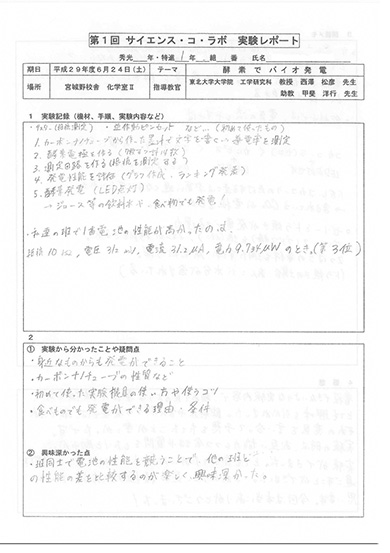 第１回 サイエンス・コ・ラボ 実験レポート
秀光 年・特進 1 年 組 番 氏名
期日 平成２９年度６月２４日（土） テーマ 酵素でバイオ発電
場所 宮城野校舎 化学室Ⅱ 指導教官 東北大学大学院 工学研究科 教授 西澤 松彦 先生
助教 甲斐 洋行 先生
１ 実験記録（機材、手順、実験内容など）
・テスター（抵抗測定） ・ ピンセット など…（初めて使ったもの）
1. カーボンナノチューブから作った墨汁で文字を書いて、導電率を測定
2. 酵素電極を作る
3. 測定回路を作る
4. 発電性能を評価（グラフ作成・ランキング発表）
5. 酵素発電（LED点灯）
→ジュース等の飲料水や食べ物でも発電。
・私達の班で1番電池の性能が高かったのは、
抵抗 10 kΩ, 電圧 312 mV, 電流 31.2 μA, 電力 9.734 μW のとき。（第3位）
２
① 実験から分かったことや疑問点
・身近なものからも発電ができること
・カーボンナノチューブの性質など
・初めて使った実験機具の使い方や使うコツ
・食べものでも発電ができる理由・条件
② 興味深かった点
・班同士で電池の性能を競うことで、他の班と…
の性能の差を比較するのが楽しく、興味深かった。